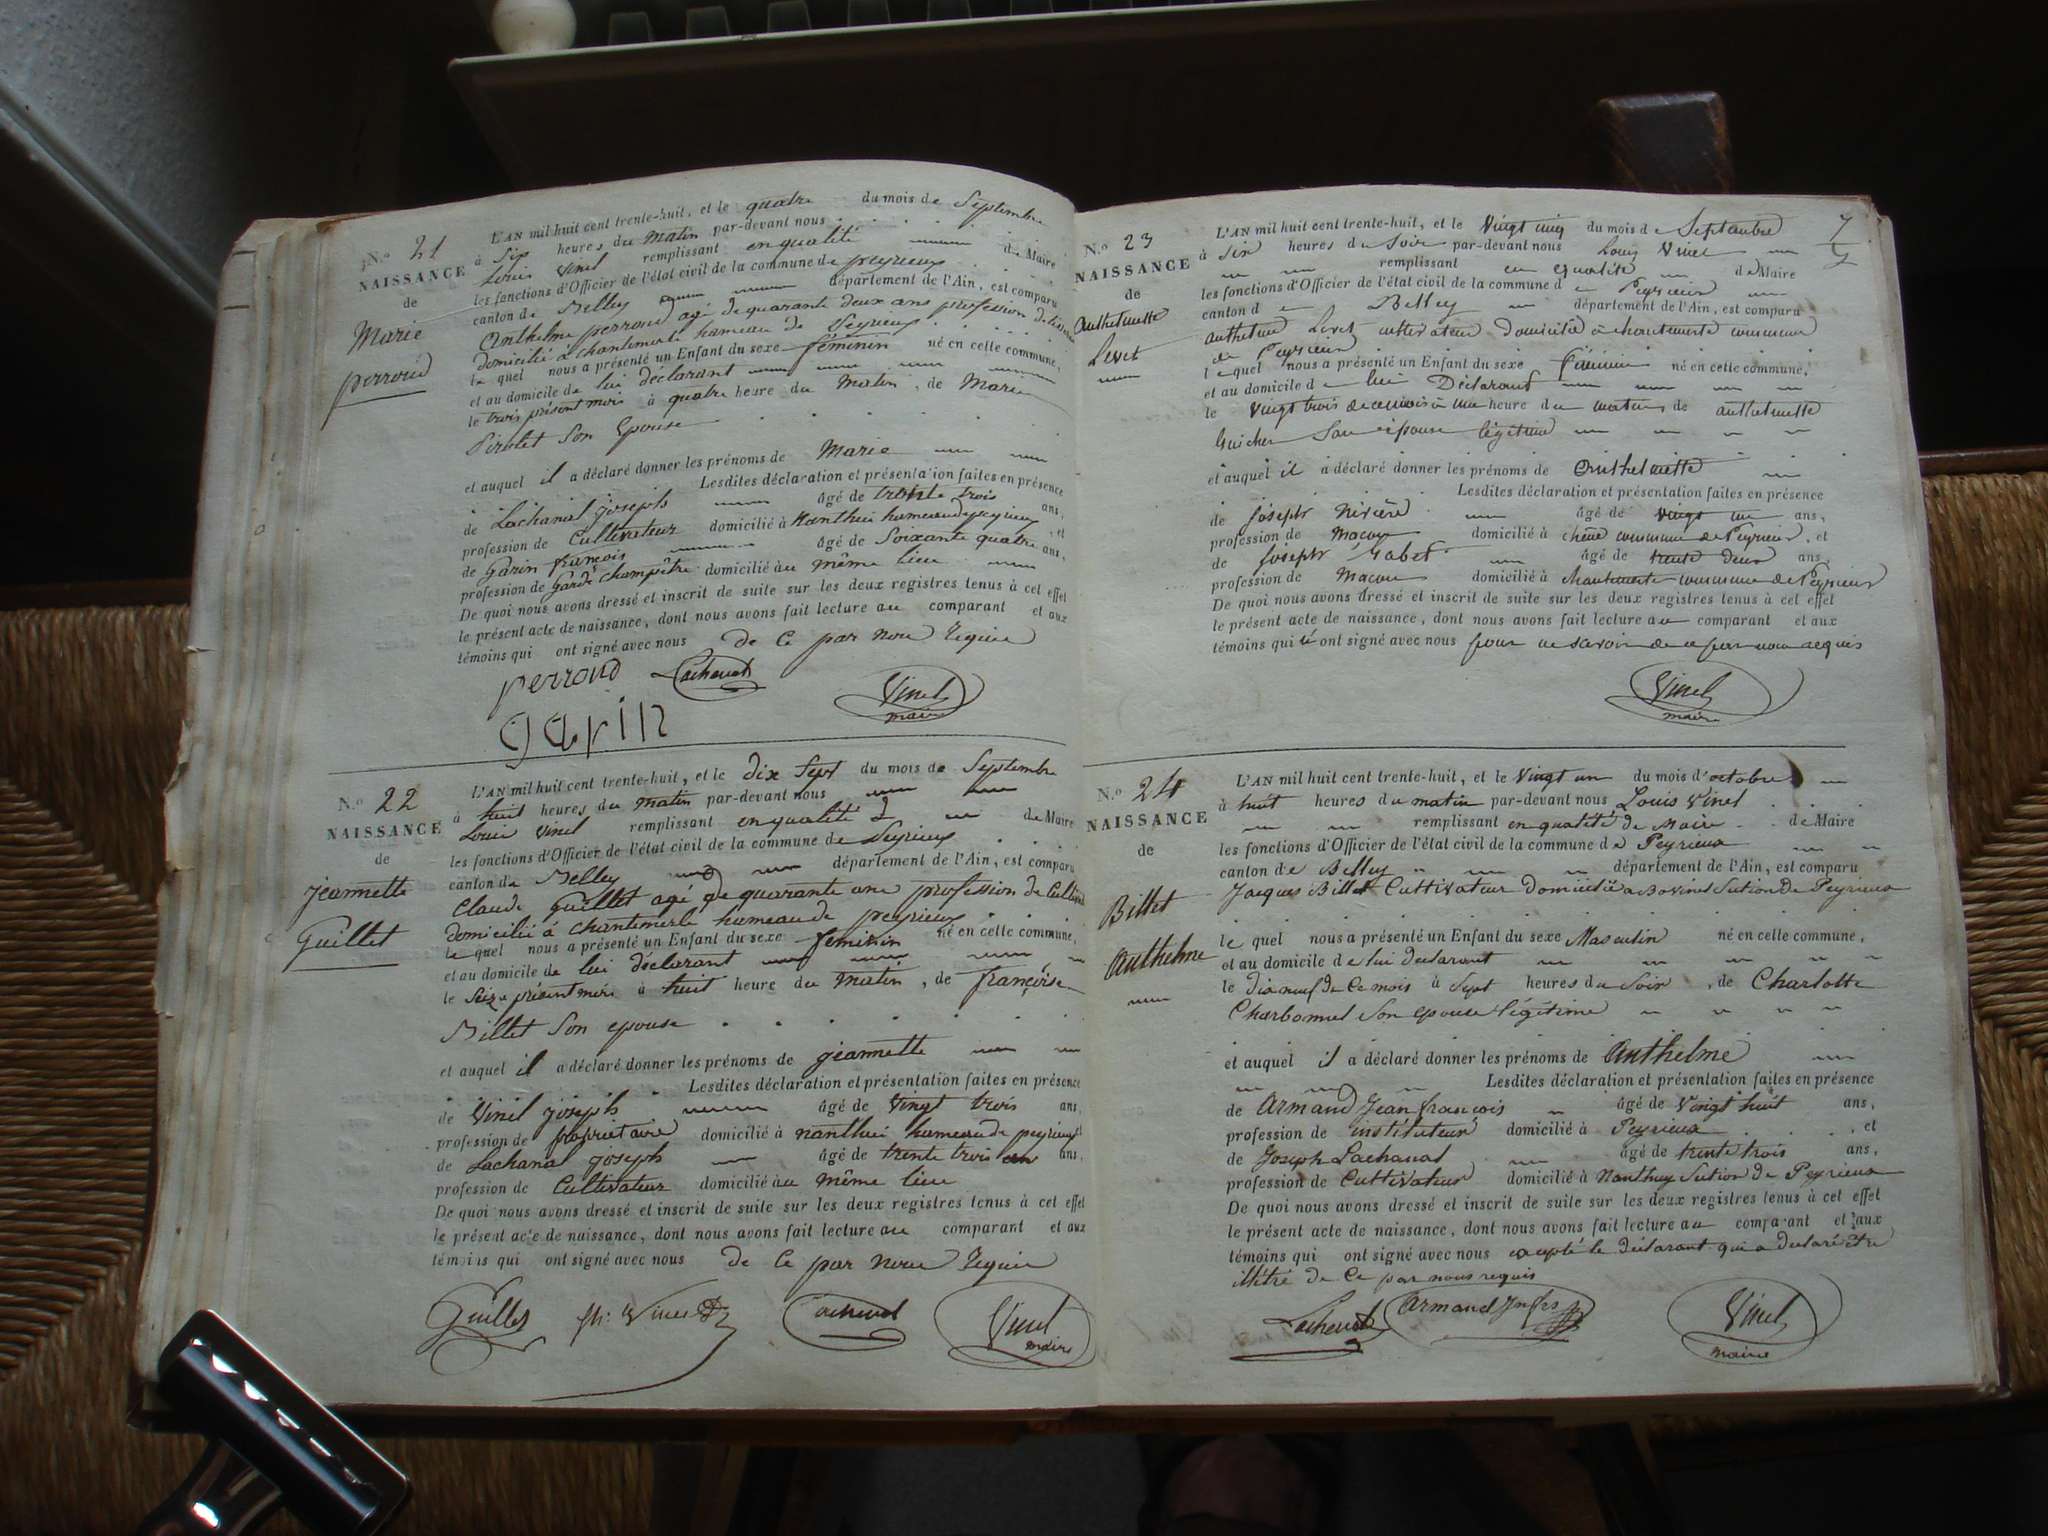 N.º 21
NAISSANCE
de
Marie
perroud
L'AN mil huit cent trente-huit, et le quatre du mois de Septembre
à Six heures du Matin par-devant nous
Louis Vinel remplissant en qualité de Maire
les fonctions d'Officier de l'état civil de la commune de peyrieux
canton de Belley département de l'Ain, est comparu
Anthelme perroud agé de quarante deux ans profession de
domicilié à chantemerle hameau de Peyrieux
le quel nous a présenté un Enfant du sexe féminin né en cette commune,
et au domicile de lui déclarant
le trois présent mois à quatre heure du Matin, de Marie
Pirolet Son Epouse
et auquel il a déclaré donner les prénoms de Marie
Lesdites déclaration et présentation faites en présence
de Lachanal joseph âgé de trente trois ans,
profession de Cultivateur domicilié à Nanthui hameau de peyrieux, et
de Garin françois âgé de Soixante quatre ans,
profession de Garde champêtre domicilié au même lieu
De quoi nous avons dressé et inscrit de suite sur les deux registres tenus à cet effet
le présent acte de naissance, dont nous avons fait lecture au comparant et aux
témoins qui ont signé avec nous de Ce par nous Requis
perroud Lachanal Vinel
maire
garin
N.º 22
NAISSANCE
de
jeannette
Guillet
L'AN mil huit cent trente-huit, et le dix Sept du mois de Septembre
à huit heures du matin par-devant nous
Louis Vinel remplissant en qualité d de Maire
les fonctions d'Officier de l'état civil de la commune de Peyrieux
canton de Belley département de l'Ain, est comparu
Claude Guillet agé de quarante ans profession de Cultiv
domicilié à chantemerle hameau de peyrieux
le quel nous a présenté un Enfant du sexe feminin né en cette commune,
et au domicile de lui déclarant
le Seize présent mois à huit heure du Matin, de françoise
Billet Son epouse
et auquel il a déclaré donner les prénoms de jeannette
Lesdites déclaration et présentation faites en présence
de Vinel joseph âgé de Vingt trois ans,
profession de propriétaire domicilié à nanthui hameau de peyrieux
de Lachanal joseph âgé de trente trois ans,
profession de Cultivateur domicilié au même lieu
De quoi nous avons dressé et inscrit de suite sur les deux registres tenus à cet effet
le présent acte de naissance, dont nous avons fait lecture au comparant et aux
témoins qui ont signé avec nous de Ce par nous Requis
Guillet Lachanal Vinel
maire
7
N.º 23
NAISSANCE
de
Anthelmette
Levet
L'AN mil huit cent trente-huit, et le Vingt cinq du mois de Septembre
à six heures du Soir par-devant nous Louis Vinel
remplissant en qualité de Maire
les fonctions d'Officier de l'état civil de la commune de Peyrieux
canton de Belley département de l'Ain, est comparu
Anthelme Levet cultivateur domicilié à chantemerle commune
de Peyrieux
lequel nous a présenté un Enfant du sexe féminin né en cette commune,
et au domicile de lui Déclarant
le Vingt trois de ce mois à une heure du matin, de anthelmette
Guicher Son épouse légitime
et auquel il a déclaré donner les prénoms de Anthelmette
Lesdites déclaration et présentation faites en présence
de joseph Rivière âgé de vingt un ans,
profession de Maçon domicilié à commune de Peyrieux, et
de Joseph Gabet âgé de trente Deux ans,
profession de Macon domicilié à Chantemerle commune de Peyrieux
De quoi nous avons dressé et inscrit de suite sur les deux registres tenus à cet effet
le présent acte de naissance, dont nous avons fait lecture au comparant et aux
témoins qui n'ont signé avec nous pour ne savoir de ce par nous requis
Vinel
maire
N.º 24
NAISSANCE
de
Billet
Anthelme
L'AN mil huit cent trente-huit, et le Vingt un du mois d'octobre
à huit heures du matin par-devant nous Louis Vinel
remplissant en qualité de Maire de Maire
les fonctions d'Officier de l'état civil de la commune de Peyrieux
canton de Belley département de l'Ain, est comparu
Jacques Billet Cultivateur Domicilié a Bovinel Section De Peyrieux
le quel nous a présenté un Enfant du sexe Masculin né en cette commune,
et au domicile de lui declarant
le dix neuf de Ce mois à Sept heures du Soir, de Charlotte
Charbonnel Son epouse légitime
et auquel il a déclaré donner les prénoms de Anthelme
Lesdites déclaration et présentation faites en présence
de Armand Jean francois âgé de Vingt huit ans,
profession de instituteur domicilié à Peyrieux, et
de Joseph Lachanal âgé de trente trois ans,
profession de Cultivateur domicilié à Nanthuy Section De Peyrieux
De quoi nous avons dressé et inscrit de suite sur les deux registres tenus à cet effet
le présent acte de naissance, dont nous avons fait lecture au comparant et aux
témoins qui ont signé avec nous excepté le déclarant qui a déclaré être
illétré de Ce par nous requis
Lachanal Armand Vinel
maire